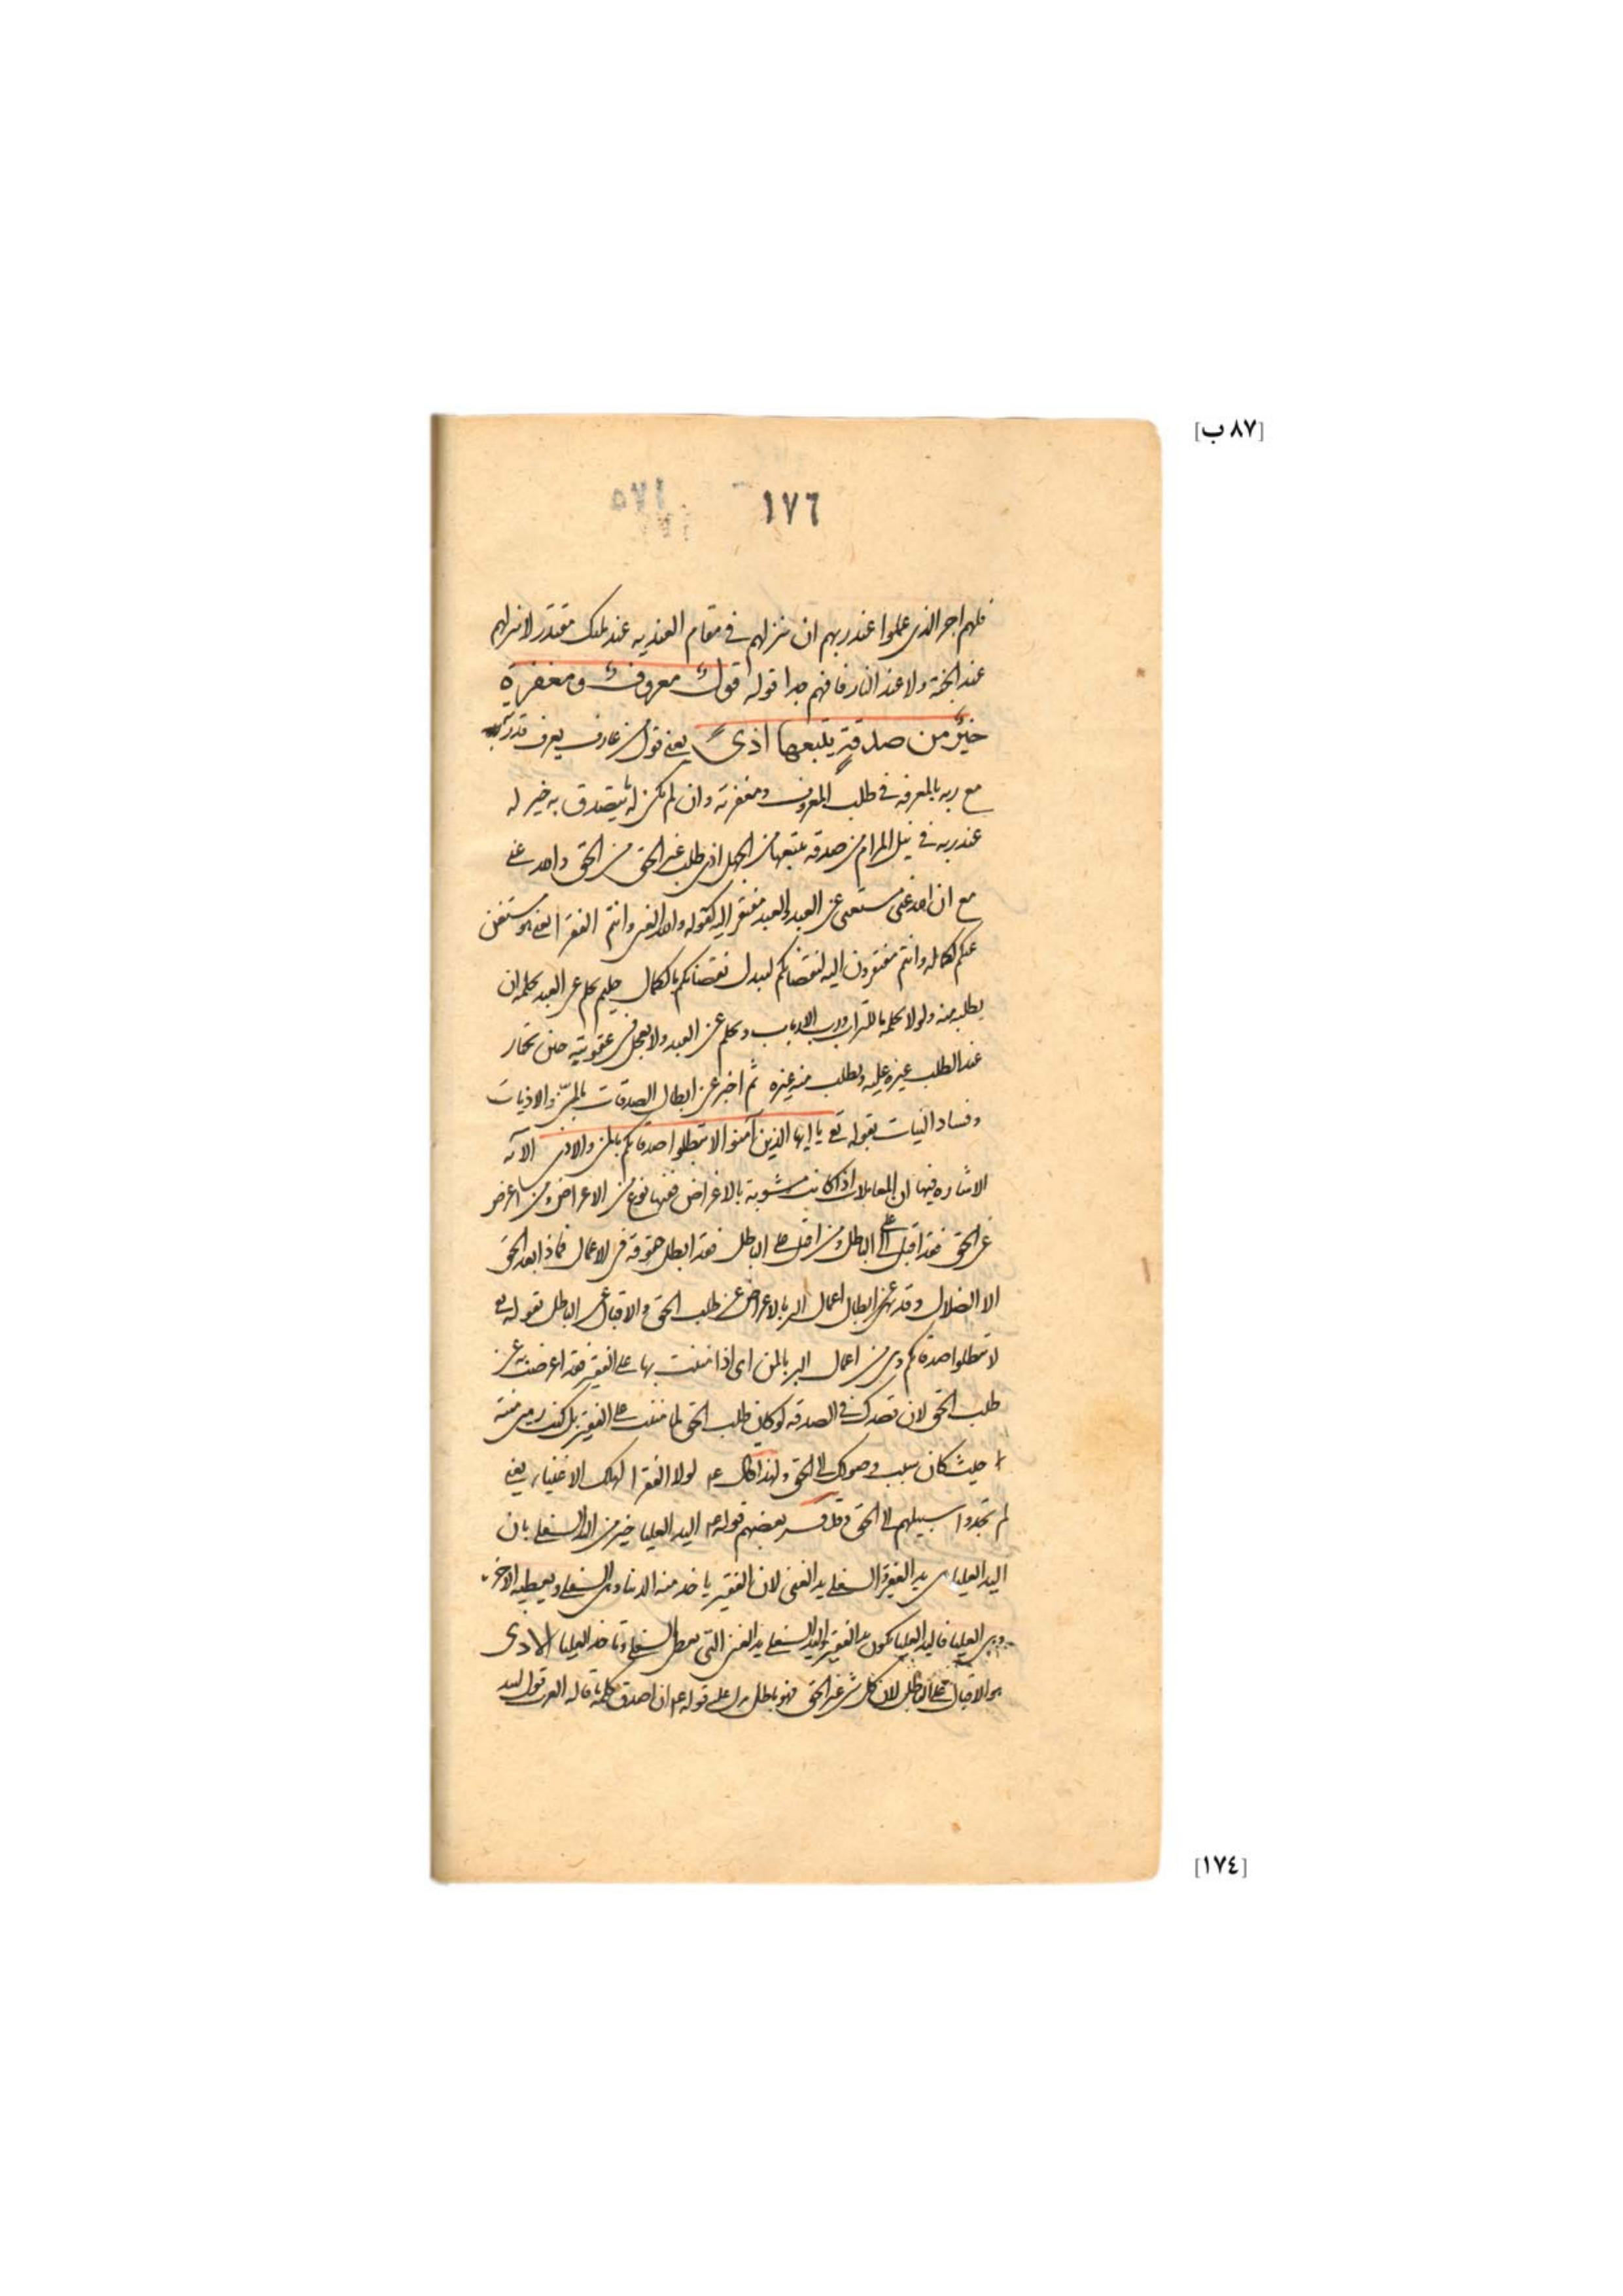 [٨٧ ب]
١٧٦
١٧٥
فلهم اجر الذى عملوا عند ربهم ان ينزلهم فى مقام العنديه عند مليك مقتدر لا ينزلهم
عند الجنة ولا عند النار فافهم جدا قوله قول معروف ومغفرة
خير من صدقة يتبعها اذى يعنى قول من عارف يعرف قدر
مع ربه بالمعرفه فى طلب المعروف ومغفرته وان لم يكن له يتصدق به خير له
عند ربه فى نيل المرام من صدقه يتبعها من الجهل اذى طلب غير الحق من الحق والله غنى
مع ان الله غنى مستغنى عن العبد والعبد مفتقر اليه كقوله والله الغنى وانتم الفقرا يعنى هو مستغنى
عنكم لكماله وانتم مفتقرون اليه لنقصانكم ليبدل نقصانكم بالكمال حليم يحلم عن العبد بحلمه ان
يطلب منه ولولا حلمه ما للتراب ورب الارباب ويحلم عن العبد ولا يعجل فى عقوبته حين يختار
عند الطلب غيره عليه ويطلب منه غيره ثم اخبر عن ابطال الصدقات بالمن والاذيات
وفساد النيات بقوله تع يا ايها الذين آمنوا لا تبطلوا صدقاتكم بالمن والاذى الآيه
الاشاره فيها ان المعاملات اذا كانت مشوبة بالاغراض ففيها نوع من الاعراض ومن اعرض
عن الحق فقد اقبل على الباطل ومن اقبل على الباطل فقد ابطل حقوقه فى الاعمال فماذا بعد الحق
الا الضلال وقد نهى عن ابطال اعمال البر بالاعراض عن طلب الحق والاقبال على الباطل بقوله تع
لا تبطلوا صدقاتكم وهى من اعمال البر بالمن اى اذا مننت بها على الفقير فقد اعرضت عن
طلب الحق لان قصدك فى الصدقه لو كان طلب الحق لما مننت على الفقير بل كنت رهين منته
حيث كان سبب وصولك الى الحق ولهذا قال عم لولا الفقرا لهلك الاغنياء يعنى
لم تجدوا سبيلهم الى الحق وقد فسر بعضهم قوله عم اليد العليا خير من اليد السفلى بان
اليد العليا هى يد الفقير والسفلى يد الغنى لان الفقير ياخذ منه الدنيا وهى السفلى ويعطيه الاخره
وهى العليا فاليد العليا تكون يد الفقير واليد السفلى يد الغنى التى تعطى السفلى وتاخذ العليا الاذى
هو الاقبال على الباطل لان كل شى غير الحق فهو باطل يدل على قوله عم ان اصدق كلمة قاله العرب قول لبيد
[١٧٤]